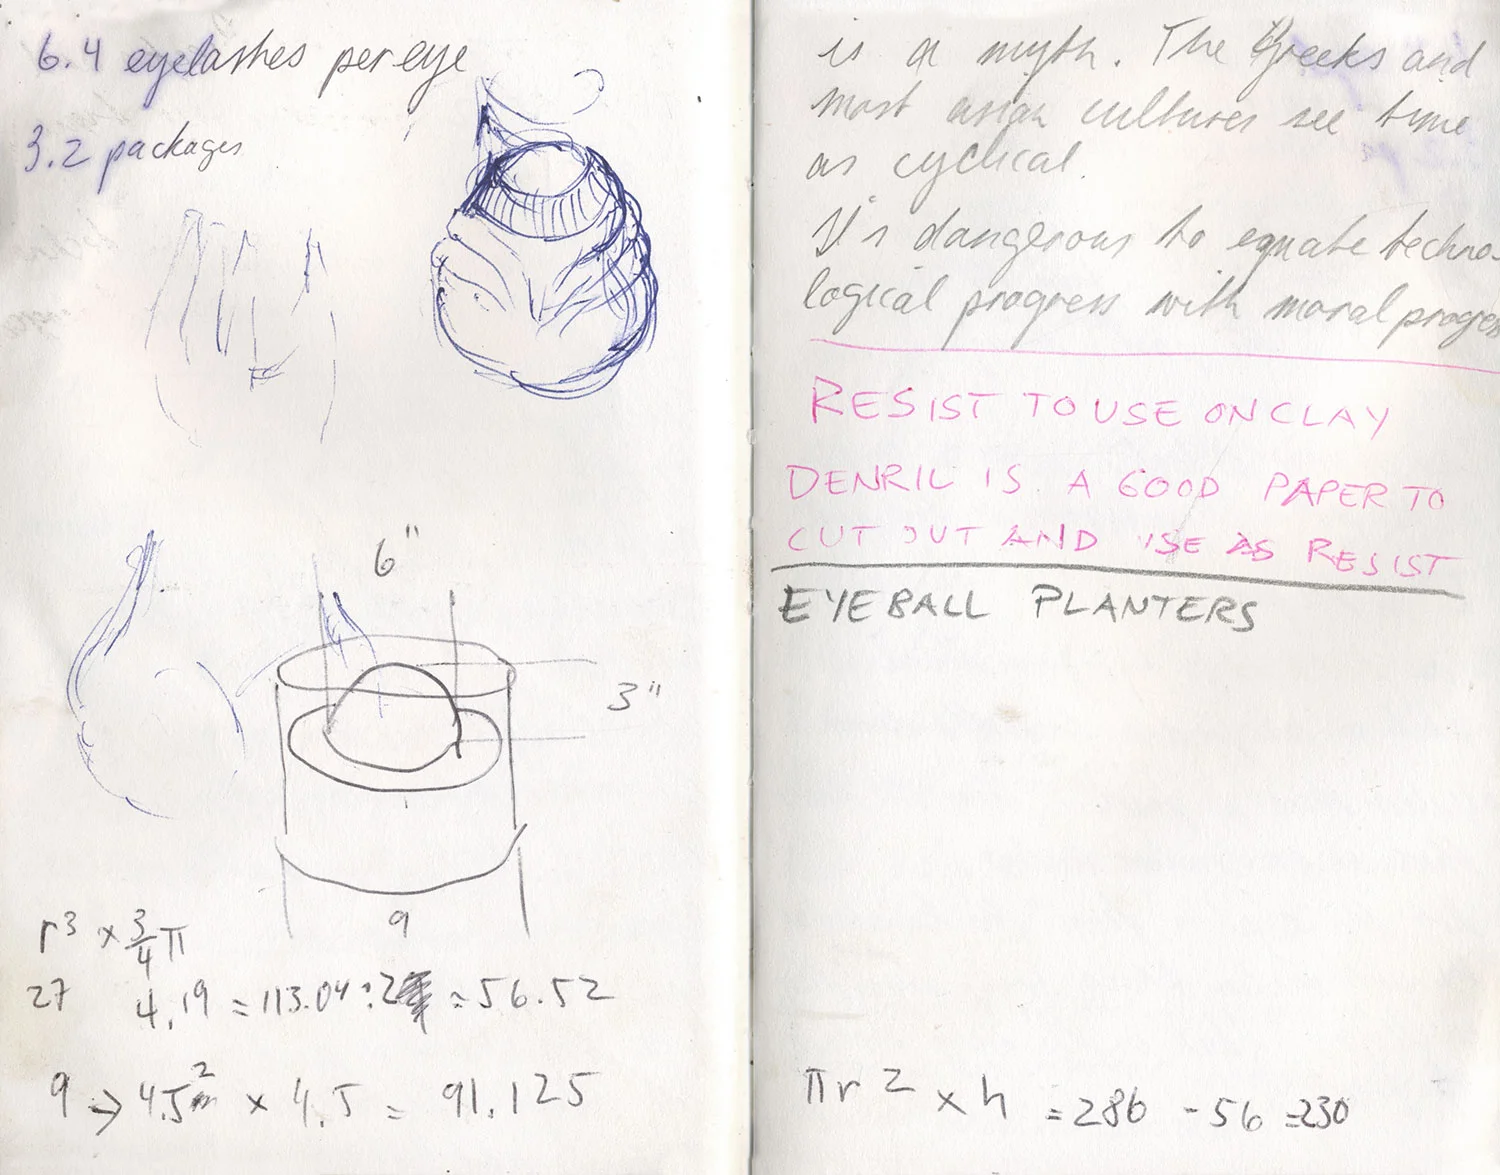 6.4 eyelashes per eye
3.2 packages
6"
3"
9
r³ × 3/4 π
27 4.19 = 113.04 : 2 = 56.52
9 → 4.5² × 4.5 = 91.125
is a myth. The Greeks and
most asian cultures see time
as cyclical.
It's dangerous to equate techno-
logical progress with moral progress
RESIST TO USE ON CLAY
DENRIL IS A GOOD PAPER TO
CUT OUT AND USE AS RESIST
EYEBALL PLANTERS
πr² × h = 286 - 56 = 230